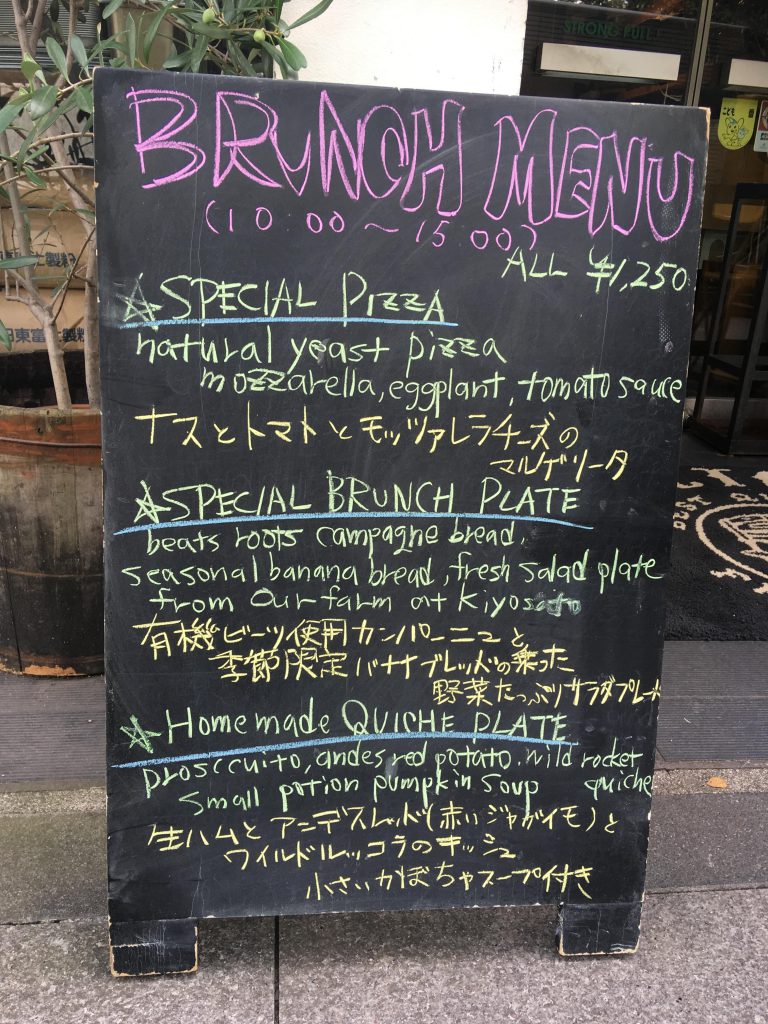 STRONG PULL!
BRUNCH MENU
(10:00 ~ 15:00)
ALL ¥1,250
☆SPECIAL PIZZA
natural yeast pizza
mozzarella, eggplant, tomato sauce
ナスとトマトとモッツァレラチーズの
マルゲリータ
☆SPECIAL BRUNCH PLATE
beats roots campagne bread,
seasonal banana bread, fresh salad plate
from our farm at Kiyosato
有機ビーツ使用カンパーニュと
季節限定バナナブレッドの乗った
野菜たっぷりサラダプレート
☆Homemade QUICHE PLATE
prosccuito, andes red potato. wild rocket
quiche
small potion pumpkin soup
生ハムとアンデスレッド(赤いジャガイモ)と
ワイルドルッコラのキッシュ
小さいかぼちゃスープ付き
こども